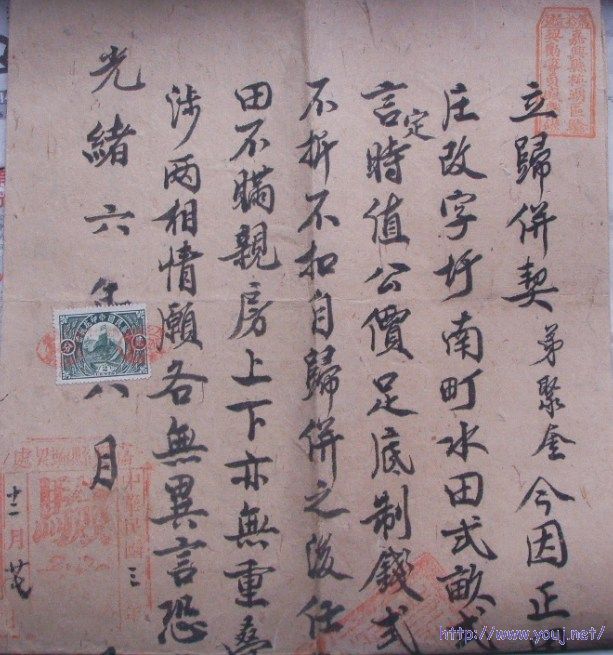 立歸併契弟聚奎今因正
庄改字圩南町水田弍畝
言定時值公價足底制錢弍
不折不扣自歸併之後任
田不瞞親房上下亦無重疊
涉兩相情願各無異言恐
光緒六年八月
中華民國三
十二月
http://www.youj.net/